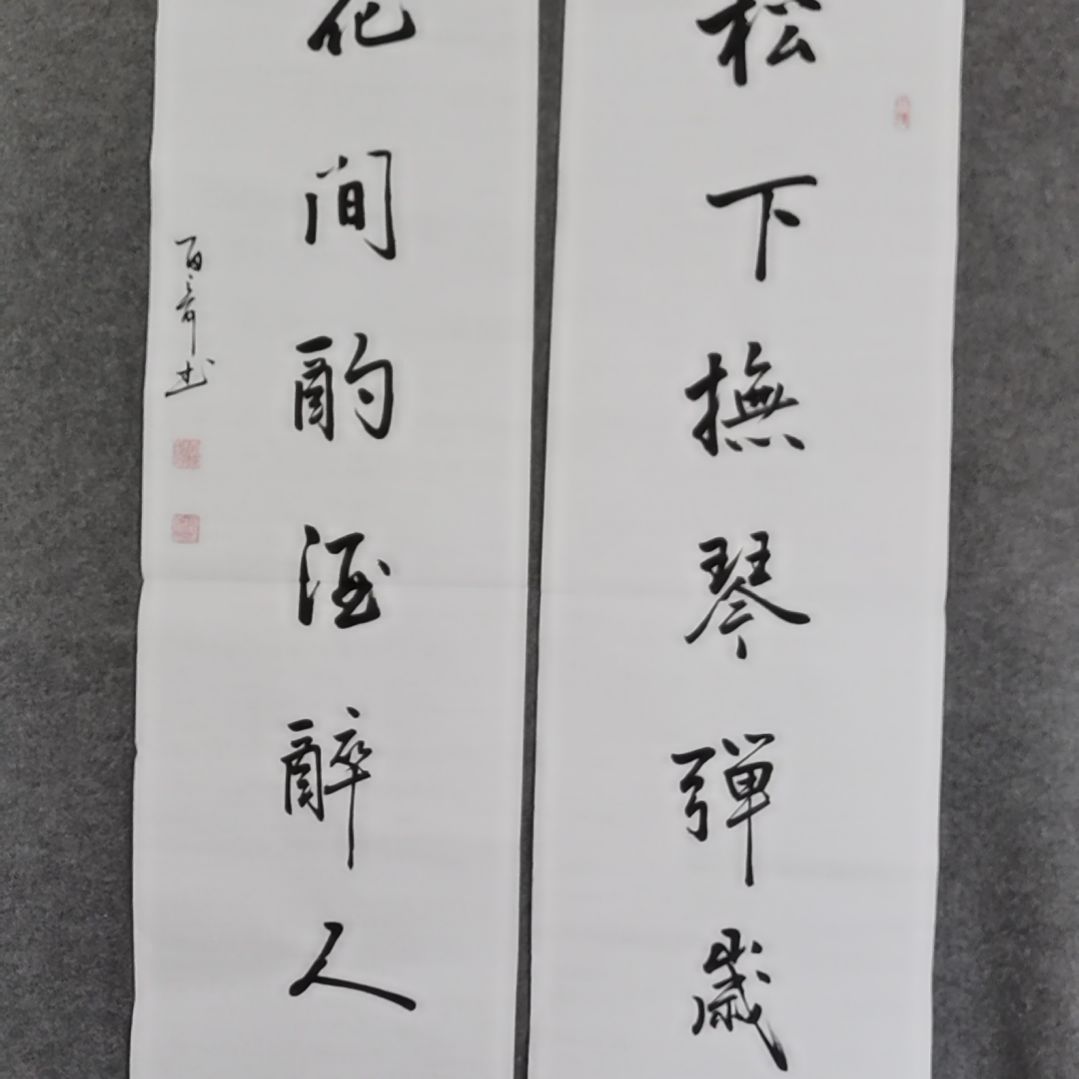 松下撫琴弹歲
花间酌酒醉人
百奇书